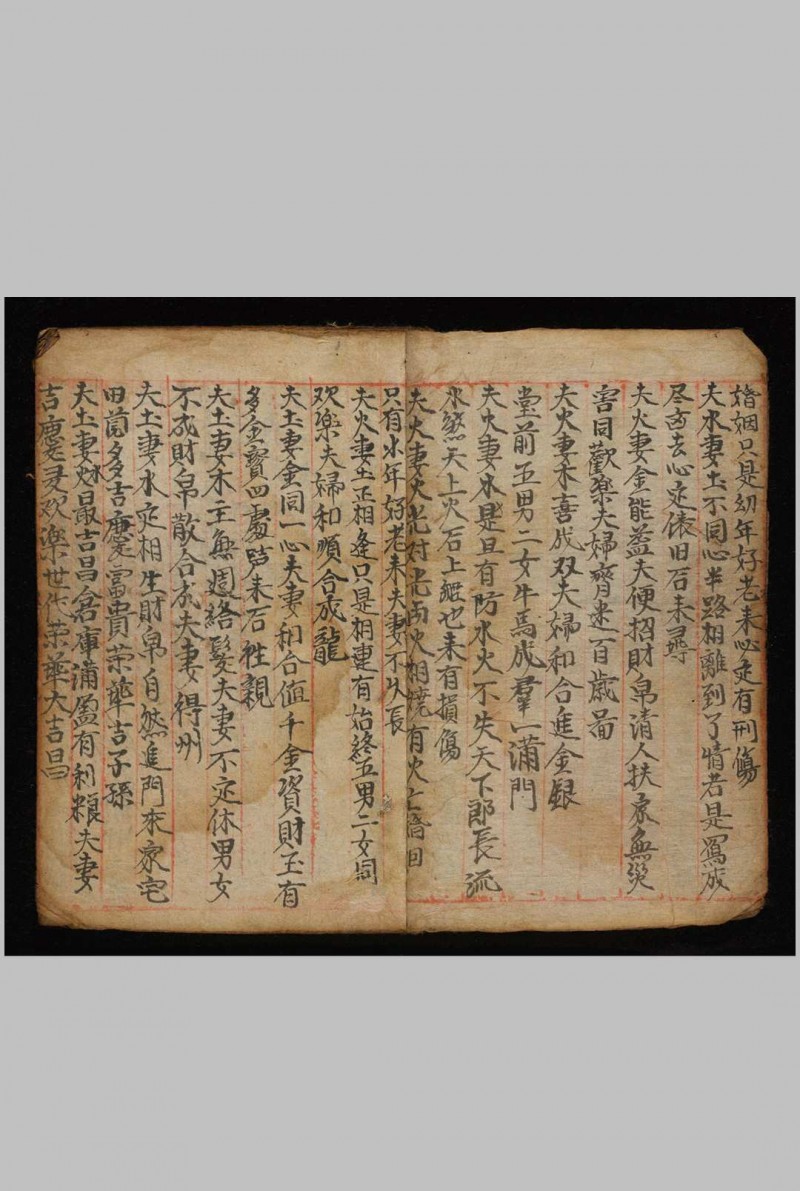 婚姻只是幼年好老耒必定有刑傷
夫水妻土不同心半路相離到了情若是寫成
尽啇去心定俵旧石耒尋
夫火妻金能益夫便招財帛清人扶家無災
害同歡樂夫婦齊迷一百歲畄
夫火妻木喜成双夫婦和合進金銀
堂前五男二女牛馬成羣一满門
夫火妻水是旦有防水火不失天下郎長流
水然天上火石上也耒有損傷
夫火妻火光对光两火相燒有火亡旧
只有水年好老耒夫妻不久長
夫火妻土正相逢只是相連有始終五男二女同
欢樂夫婦和順合成龍
夫土妻金同一心夫妻和合值千金資財玉有
多金寶四處耒石牲親
夫土妻木主無週絡髮夫妻不定休男女
不成財帛散合成夫妻得州
夫土妻水定相生財帛自然進門來家宅
田苗多吉慶富貴荣華吉子孫
夫土妻火最吉昌倉庫满盈有利粮夫妻
吉慶是欢樂世代荣華大吉昌